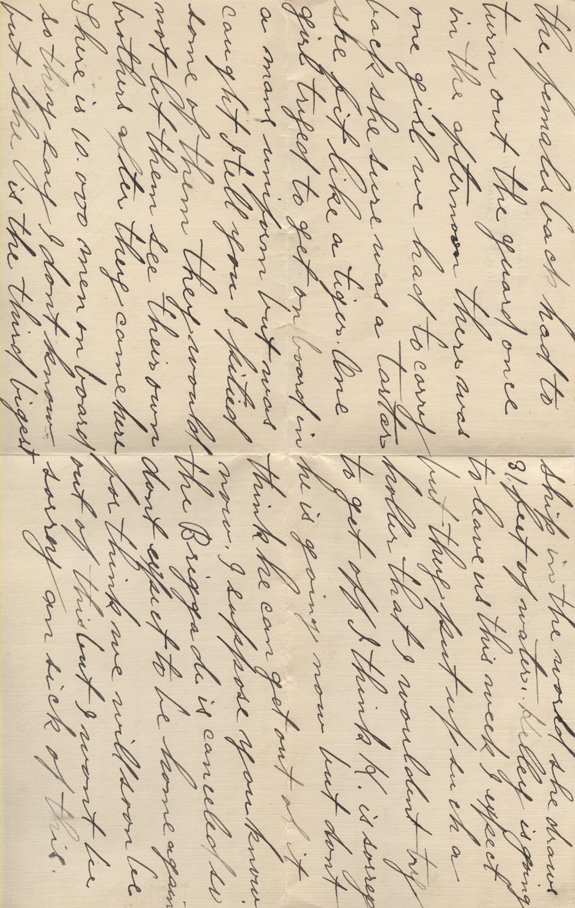 the females back had to
turn out the guard once
in the afternoon there was
one girl we had to carry
back she sure was a tartar
she fit like a tiger. One
girl tryed to get on board in
a mans uniform but was
caught I tell you I pitied
some of them they would
not let them see their own
brothers after they came here
There is 10.000 men on board
so they say I dont know
but she is the third bigest
ship in the world she draws
31 feet of water. Killey is going
to leave us this week I expect
but they put up such a
holler that I wouldent try
to get off I think K. is sorrey
he is going now but dont
think he can get out of it
now. I suppose you know
the Briggade is canceled so
dont expect to be home again
for think we will soon be
out of this but I wont be
sorrey an sick of this.